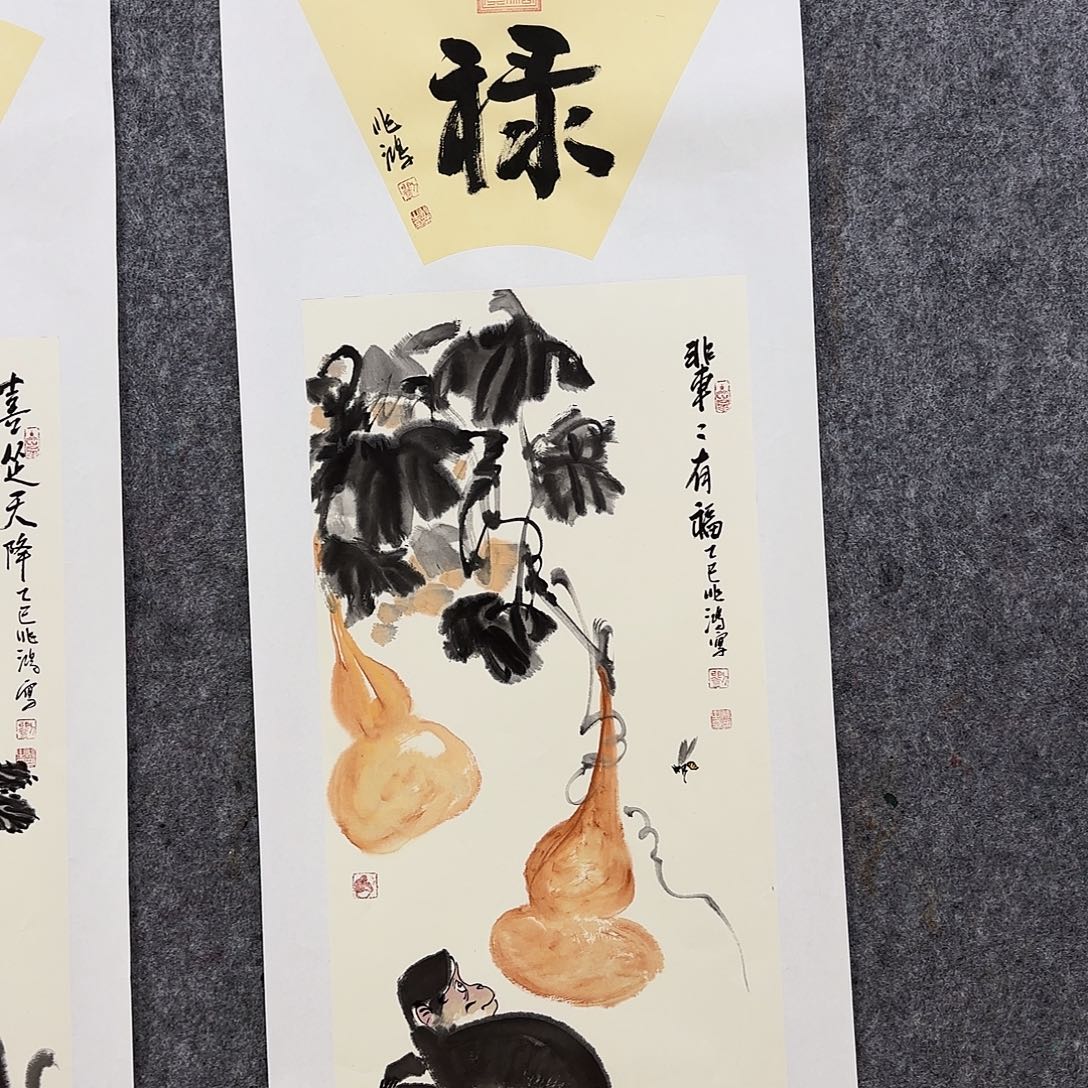 禄
兆鸿
辈〻有福 乙巳兆鸿写
喜从天降 乙巳兆鸿写